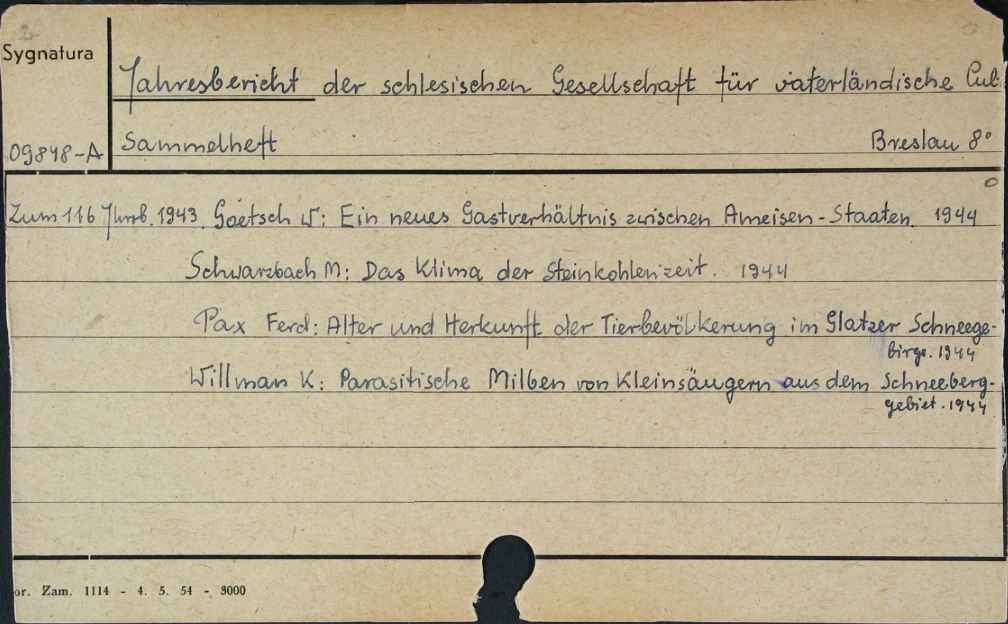 Sygnatura
Jahresbericht der schlesischen Gesellschaft für vaterländische Cul
09848-A Sammelheft Breslau 8°
Zum 116 Jhrb. 1943. Goetsch W: Ein neues Gastverhältnis zwischen Ameisen-Staaten. 1944
Schwarzbach M: Das Klima der Steinkohlenzeit. 1944
Pax Ferd: Alter und Herkunft der Tierbevölkerung im Glatzer Schneege-
birge. 1944
Willman K: Parasitische Milben von Kleinsäugern aus dem Schneeberg-
gebiet. 1944
or. Zam. 1114 - 4. 5. 54 - 3000